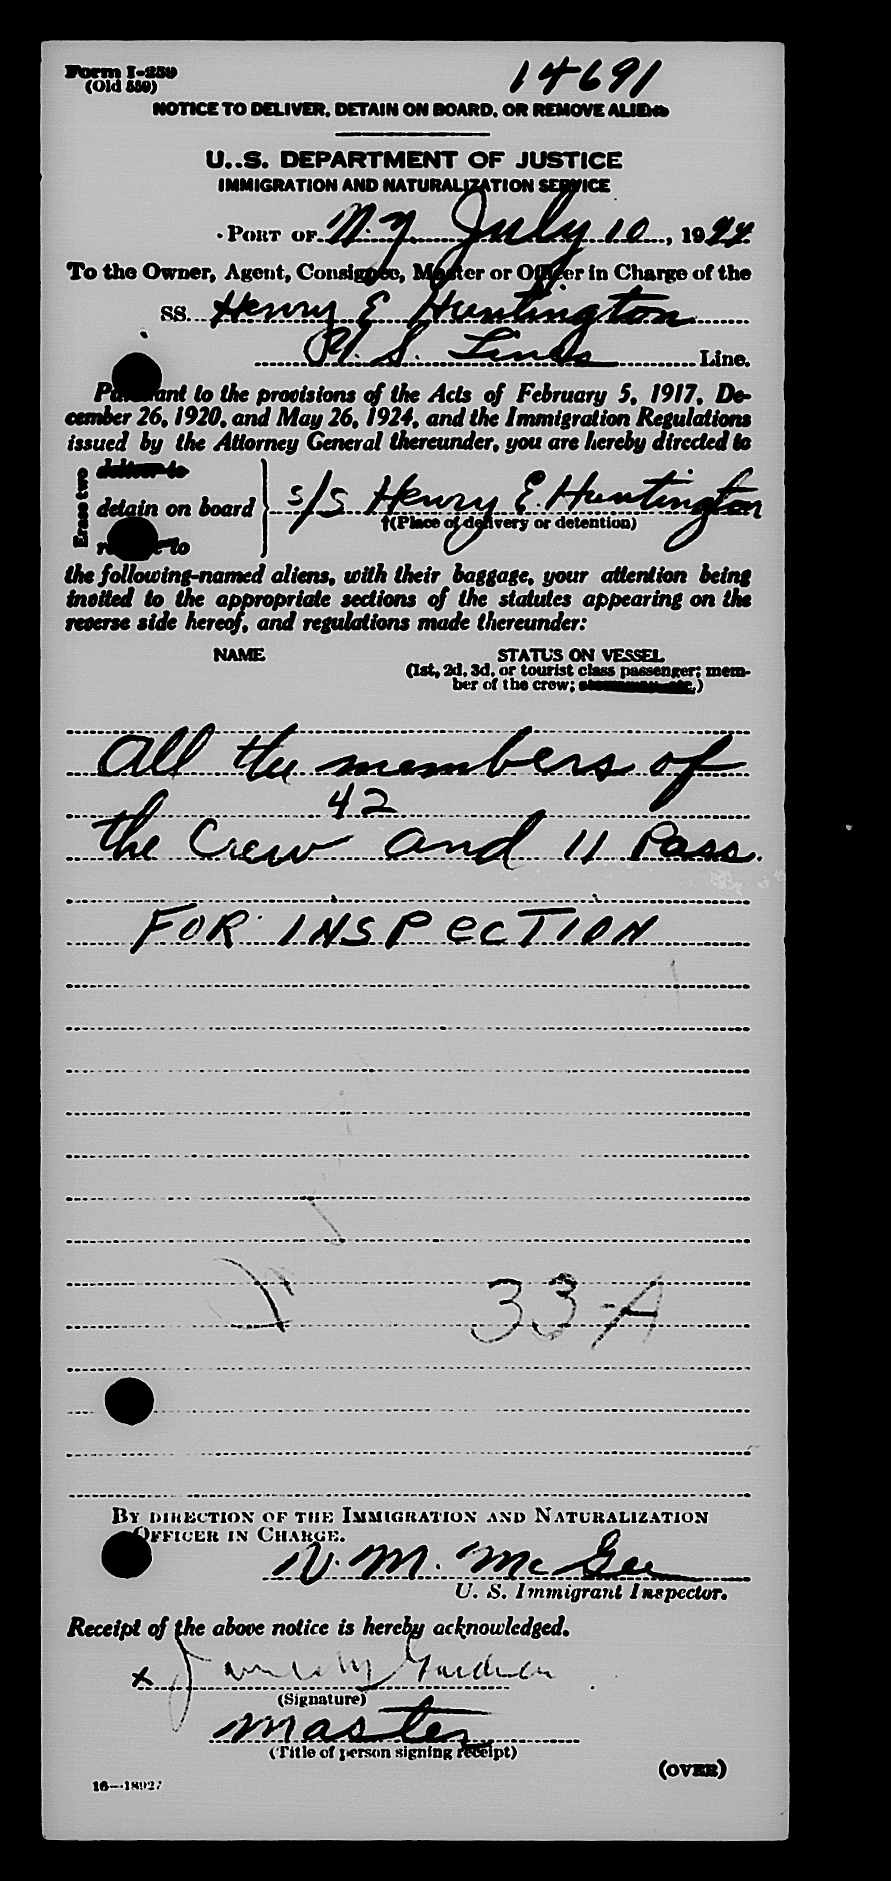 Form I-259
14691
(Old 559)
NOTICE TO DELIVER, DETAIN ON BOARD, OR REMOVE ALIENS
U. S. DEPARTMENT OF JUSTICE
IMMIGRATION AND NATURALIZATION SERVICE
PORT OF N.Y. July 10, 1944
To the Owner, Agent, Consignee, Master or Officer in Charge of the
SS. Henry E Huntington
U. S. Lines Line.
Pursuant to the provisions of the Acts of February 5, 1917, De-
cember 26, 1920, and May 26, 1924, and the Immigration Regulations
issued by the Attorney General thereunder, you are hereby directed to
Erase two
deliver to
detain on board
s/s Henry E. Huntington
†(Place of delivery or detention)
remove to
the following-named aliens, with their baggage, your attention being
invited to the appropriate sections of the statutes appearing on the
reverse side hereof, and regulations made thereunder:
NAME
STATUS ON VESSEL
(1st, 2d, 3d, or tourist class passenger; mem-
ber of the crew;
All the members of
42
the Crew and 11 Pass.
FOR INSPECTION
33-A
BY DIRECTION OF THE IMMIGRATION AND NATURALIZATION
OFFICER IN CHARGE.
N. M. McGee
U. S. Immigrant Inspector.
Receipt of the above notice is hereby acknowledged.
x
(Signature)
master
(Title of person signing receipt)
(OVER)
16—18927